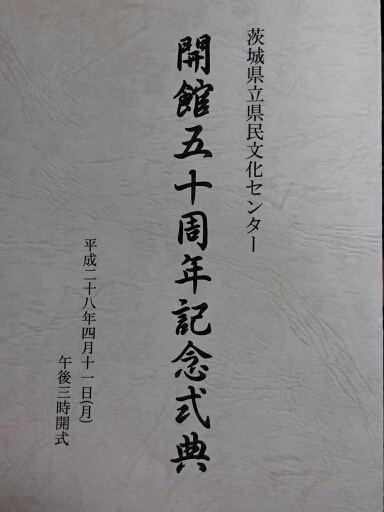 茨城県立県民文化センター
開館五十周年記念式典
平成二十八年四月十一日(月)
午後三時開式